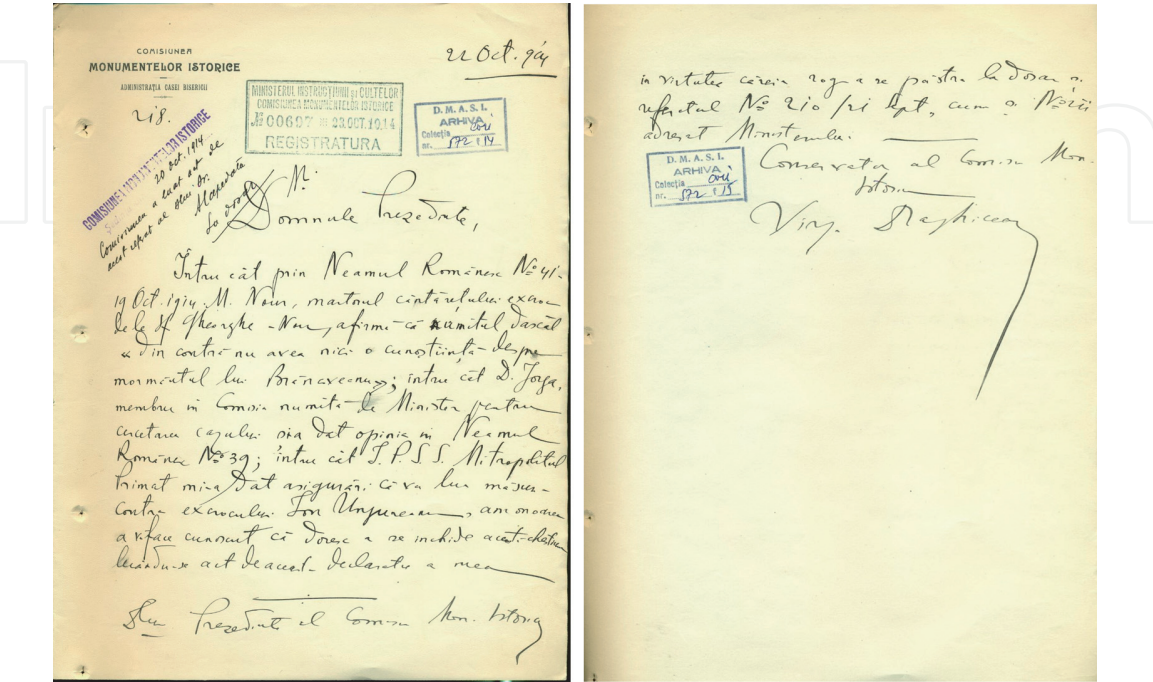 COMISIUNEA
MONUMENTELOR ISTORICE
ADMINISTRAȚIA CASEI BISERICII
218.
22 Oct. 914
MINISTERUL INSTRUCȚIUNII și CULTELOR
COMISIUNEA MONUMENTELOR ISTORICE
№ 00697 23.OCT.1914
REGISTRATURA
D. M. A. S. I.
ARHIVA
Colecția
nr. 572 114
COMISIUNEA MONUMENTELOR ISTORICE
20 oct. 1914
Comisiunea a luat act de
acest referat al dlui Dr.
La dosar
Domnule Președinte,
Întru cât prin Neamul Românesc № 41-
19 Oct. 1914. M. Nour, martorul cântărețului escroc
dela Sf Gheorghe-Nou, afirmă că numitul dascăl
« din contră nu avea nici o cunoștiință despre
mormântul lui Brâncoveanu»; întru cât D. Iorga,
membru in Comisia numită de Minister pentru
cercetarea cazului și-a dat opinia in Neamul
Românesc № 39; întru cât I. P. S. S. Mitropolitul
Primat mi-a dat asigurări că va lua măsuri
contra escrocului Ion Ungureanu, am onoarea
a vă face cunoscut că doresc a se inchide acestă chestiune
luându-se act de aceastâ declarație a mea
Dlui Președinte al Comisiei Mon. Istorice
in virtutea căreia rog a se păstra la dosar și
referatul № 210/21 Sept, cum și №
adresat Ministerului.
D. M. A. S. I.
ARHIVA
Colecția
nr. 572 115
Conservator al Comisiei Mon.
Istorice
Virg. Drăghiceanu